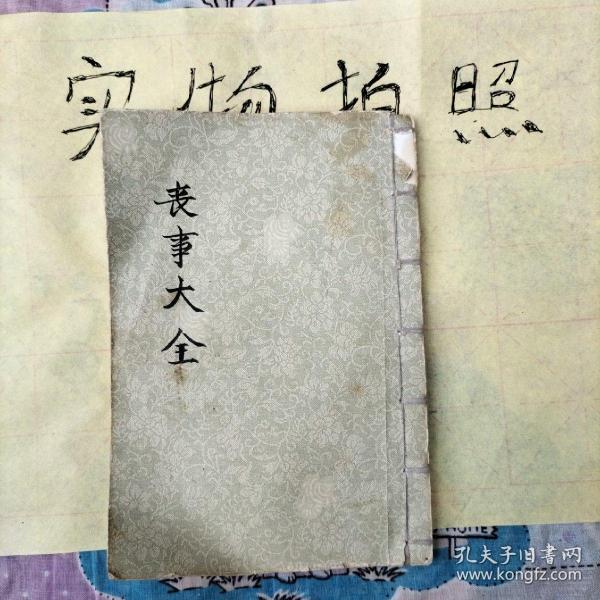 实物拍照
丧事大全
HOME
孔夫子旧书网
www.kongfz.com